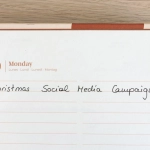 Monday
Christmas Social Media Campaign